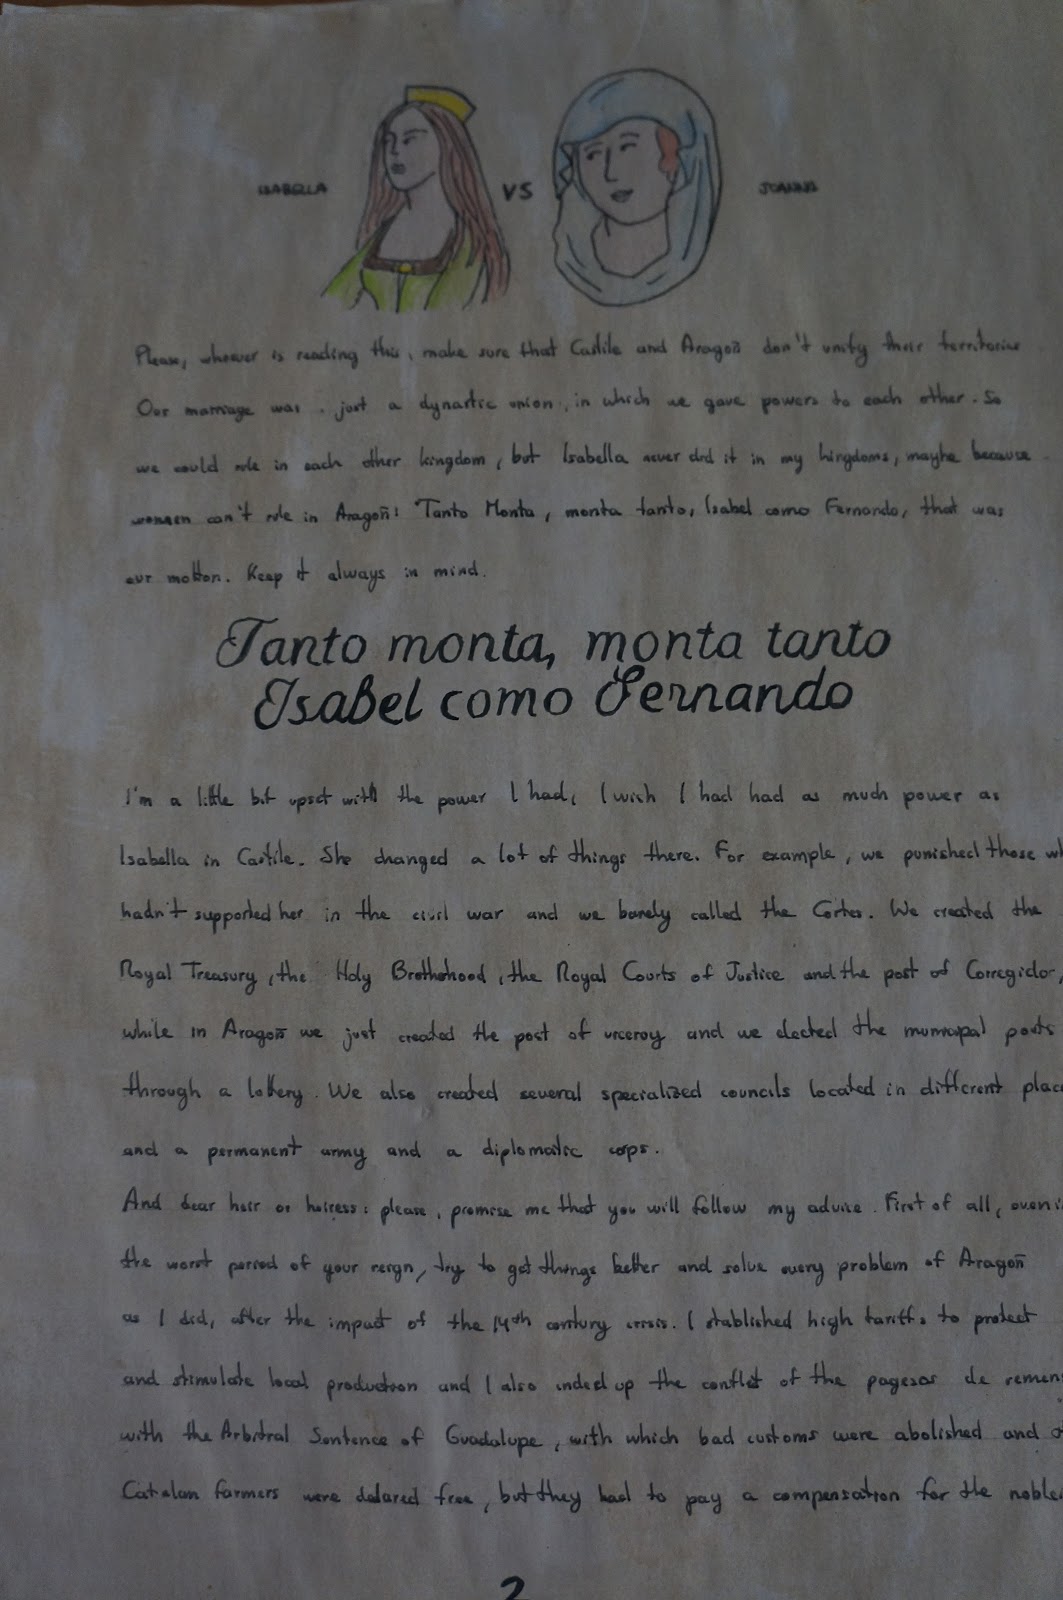 ISABELLA VS JOANNA
Please, whoever is reading this, make sure that Castile and Aragoñ don't unify their territories
Our marriage was just a dynastic union, in which we gave powers to each other. So
we could rule in each other kingdom, but Isabella never did it in my kingdoms, maybe because
women can't rule in Aragoñ! Tanto Monta, monta tanto, Isabel como Fernando, that was
our motton. Keep it always in mind.
Tanto monta, monta tanto
Isabel como Fernando
I'm a little bit upset with the power I had, I wish I had had as much power as
Isabella in Castile. She changed a lot of things there. For example, we punished those wh
hadn't supported her in the civil war and we barely called the Cortes. We created the
Royal Treasury, the Holy Brotherhood, the Royal Courts of Justice and the post of Corregidor,
while in Aragoñ we just created the post of viceroy and we elected the municipal posts
through a lottery. We also created several specialized councils located in different plac
and a permanent army and a diplomatic corps.
And dear heir or heiress: please, promise me that you will follow my advise. First of all, even i
the worst period of your reign, try to get things better and solve every problem of Aragoñ
as I did, after the impact of the 14th century crisis. I stablished high tariffs to protect
and stimulate local production and I also ended up the conflict of the pagesos de remen
with the Arbitral Sentence of Guadalupe, with which bad customs were abolished and
Catalan farmers were delared free, but they had to pay a compensation for the noble
2